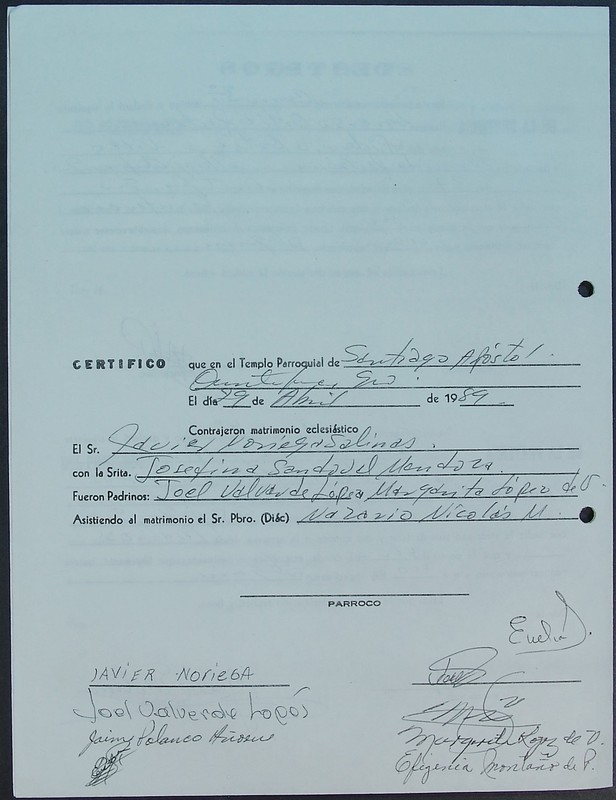 CERTIFICO que en el Templo Parroquial de Santiago Apóstol.
Gto.
El día 29 de Abril de 1989
Contrajeron matrimonio eclesiástico
El Sr. Javier Noriega Salinas.
con la Srita. Josefina Sandovel Mendoza.
Fueron Padrinos: Joel Valverde López Margarita López de V.
Asistiendo al matrimonio el Sr. Pbro. (Diác) Nazario Nicolás M.
PARROCO
JAVIER NORIEGA
Joel Valverde Lopós
Jaime Polanco
Margarita Lopez de V.
Efigenia Montaño de P.